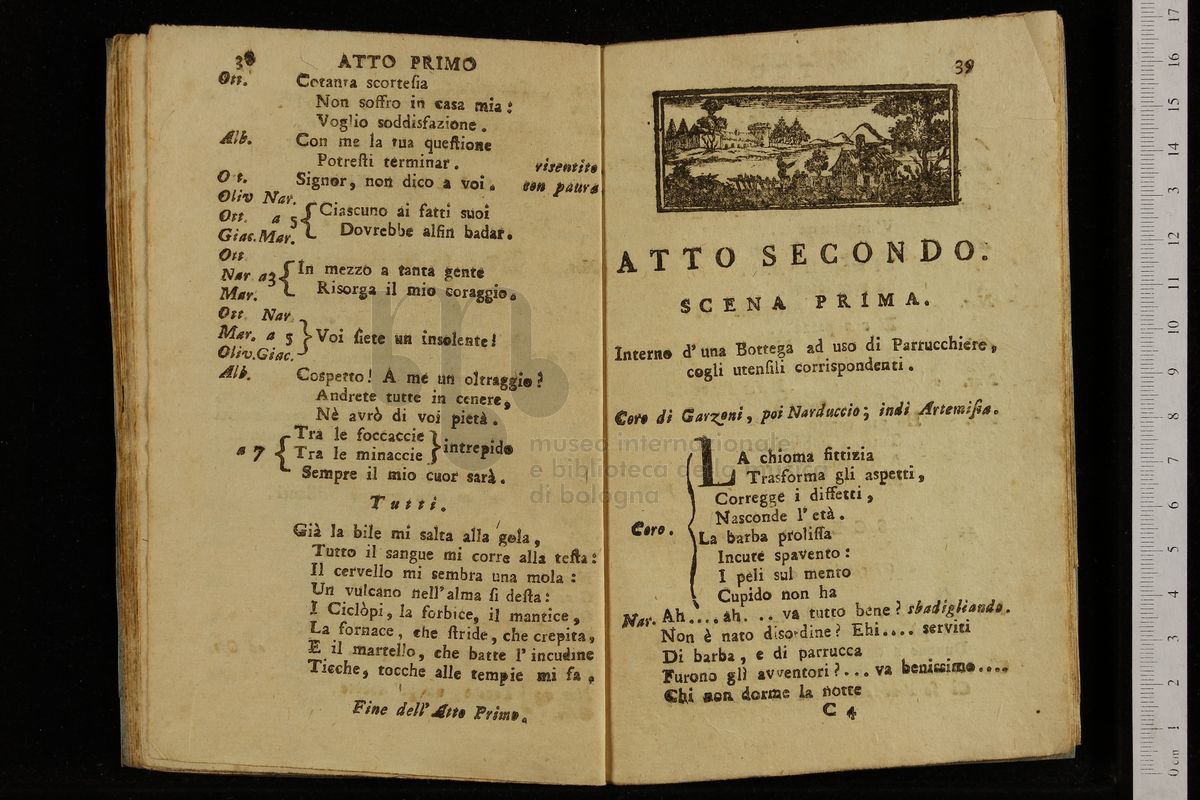 38 ATTO PRIMO
Ott. Cotanta scortesia
Non soffro in casa mia:
Voglio soddisfazione.
Alb. Con me la tua questione
Potresti terminar. risentito
Ot. Signor, non dico a voi. con paura
Oliv Nar.
Ott. a 5 { Ciascuno ai fatti suoi
Giac. Mar. Dovrebbe alfin badar.
Ott
Nar a3 { In mezzo a tanta gente
Mar. Risorga il mio coraggio.
Ott Nar
Mar. a 5 } Voi siete un insolente!
Oliv. Giac.
Alb. Cospetto! A me un oltraggio?
Andrete tutte in cenere,
Nè avrò di voi pietà.
Tra le foccaccie
a 7 { Tra le minaccie } intrepido
Sempre il mio cuor sarà.
Tutti.
Già la bile mi salta alla gola,
Tutto il sangue mi corre alla testa:
Il cervello mi sembra una mola:
Un vulcano nell'alma si desta:
I Ciclòpi, la forbice, il mantice,
La fornace, che stride, che crepita,
E il martello, che batte l'incudine
Ticche, tocche alle tempie mi fa.
Fine dell'Atto Primo.
39
ATTO SECONDO.
SCENA PRIMA.
Interno d'una Bottega ad uso di Parrucchiere,
cogli utensili corrispondenti.
Coro di Garzoni, poi Narduccio; indi Artemisia.
LA chioma fittizia
Trasforma gli aspetti,
Corregge i diffetti,
Nasconde l'età.
Coro. La barba prolissa
Incute spavento:
I peli sul mento
Cupido non ha
Nar. Ah.... ah. .. va tutto bene? sbadigliando.
Non è nato disordine? Ehi.... serviti
Di barba, e di parrucca
Furono gli avventori?... va benissimo....
Chi non dorme la notte
C 4
museo internazionale
e biblioteca della musica
di bologna
0 cm 1 2 3 4 5 6 7 8 9 10 11 12 13 14 15 16 17